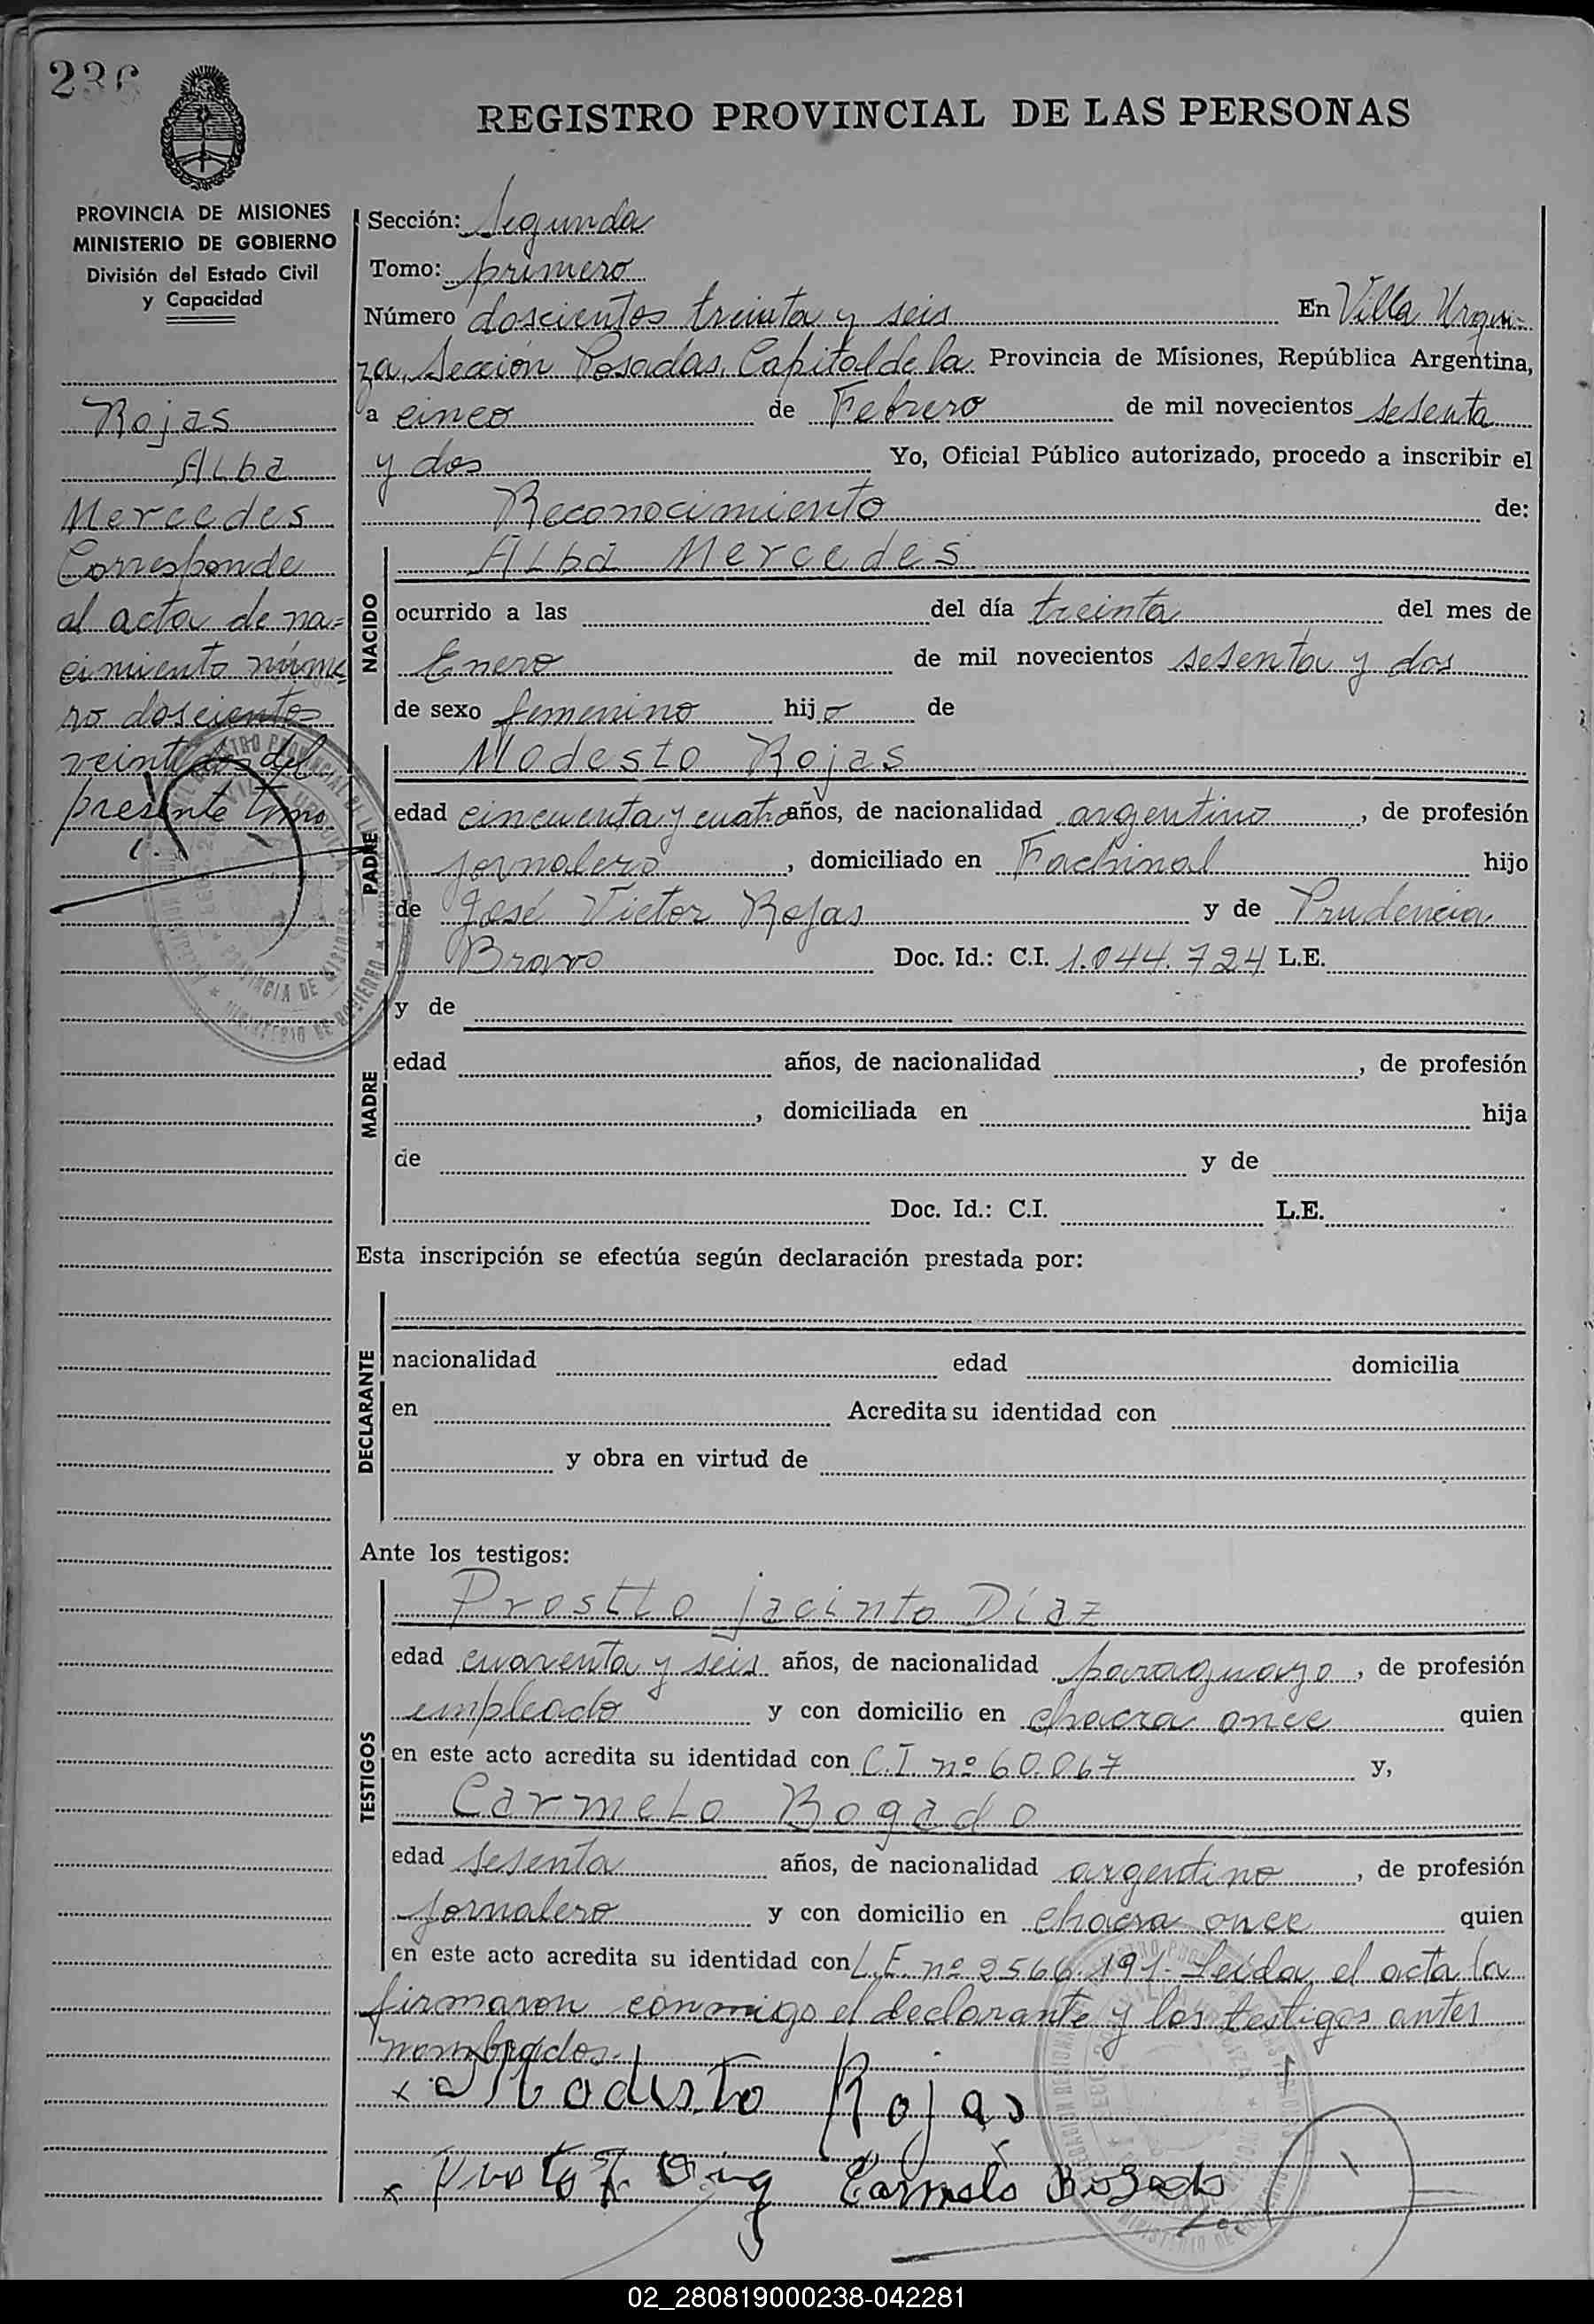 236
REGISTRO PROVINCIAL DE LAS PERSONAS
PROVINCIA DE MISIONES
MINISTERIO DE GOBIERNO
División del Estado Civil
y Capacidad
Rojas
Alba
Mercedes
Corresponde
al acta de na=
cimiento núme
ro doscientos
del
presente tomo
Sección: Segunda
Tomo: primero
Número doscientos treinta y seis En Villa Urqui-
za, Sección Posadas, Capital de la Provincia de Misiones, República Argentina,
a cinco de Febrero de mil novecientos sesenta
y dos Yo, Oficial Público autorizado, procedo a inscribir el
Reconocimiento de:
NACIDO
Alba Mercedes
ocurrido a las del día treinta del mes de
Enero de mil novecientos sesenta y dos
de sexo femenino hijo de
PADRE
Modesto Rojas
edad cincuenta y cuatro años, de nacionalidad argentino, de profesión
jornalero, domiciliado en Fachinal hijo
de José Victor Rojas y de Prudencia
Bravo Doc. Id.: C.I. 1.044.724 L.E.
MADRE
y de
edad años, de nacionalidad , de profesión
, domiciliada en hija
de y de
Doc. Id.: C.I. L.E.
Esta inscripción se efectúa según declaración prestada por:
DECLARANTE
nacionalidad edad domicilia
en Acredita su identidad con
y obra en virtud de
Ante los testigos:
TESTIGOS
jacinto Díaz
edad cuarenta y seis años, de nacionalidad paraguayo, de profesión
empleado y con domicilio en chacra once quien
en este acto acredita su identidad con C.I. nº 60.067 y,
Carmelo Bogado
edad sesenta años, de nacionalidad argentino, de profesión
jornalero y con domicilio en chacra once quien
en este acto acredita su identidad con L.E. nº 2566.191.- Leida el acta la
firmaron conmigo el declarante y los testigos antes
nombrados.-
x Modesto Rojas
x Carmelo Bogado
02_280819000238-042281